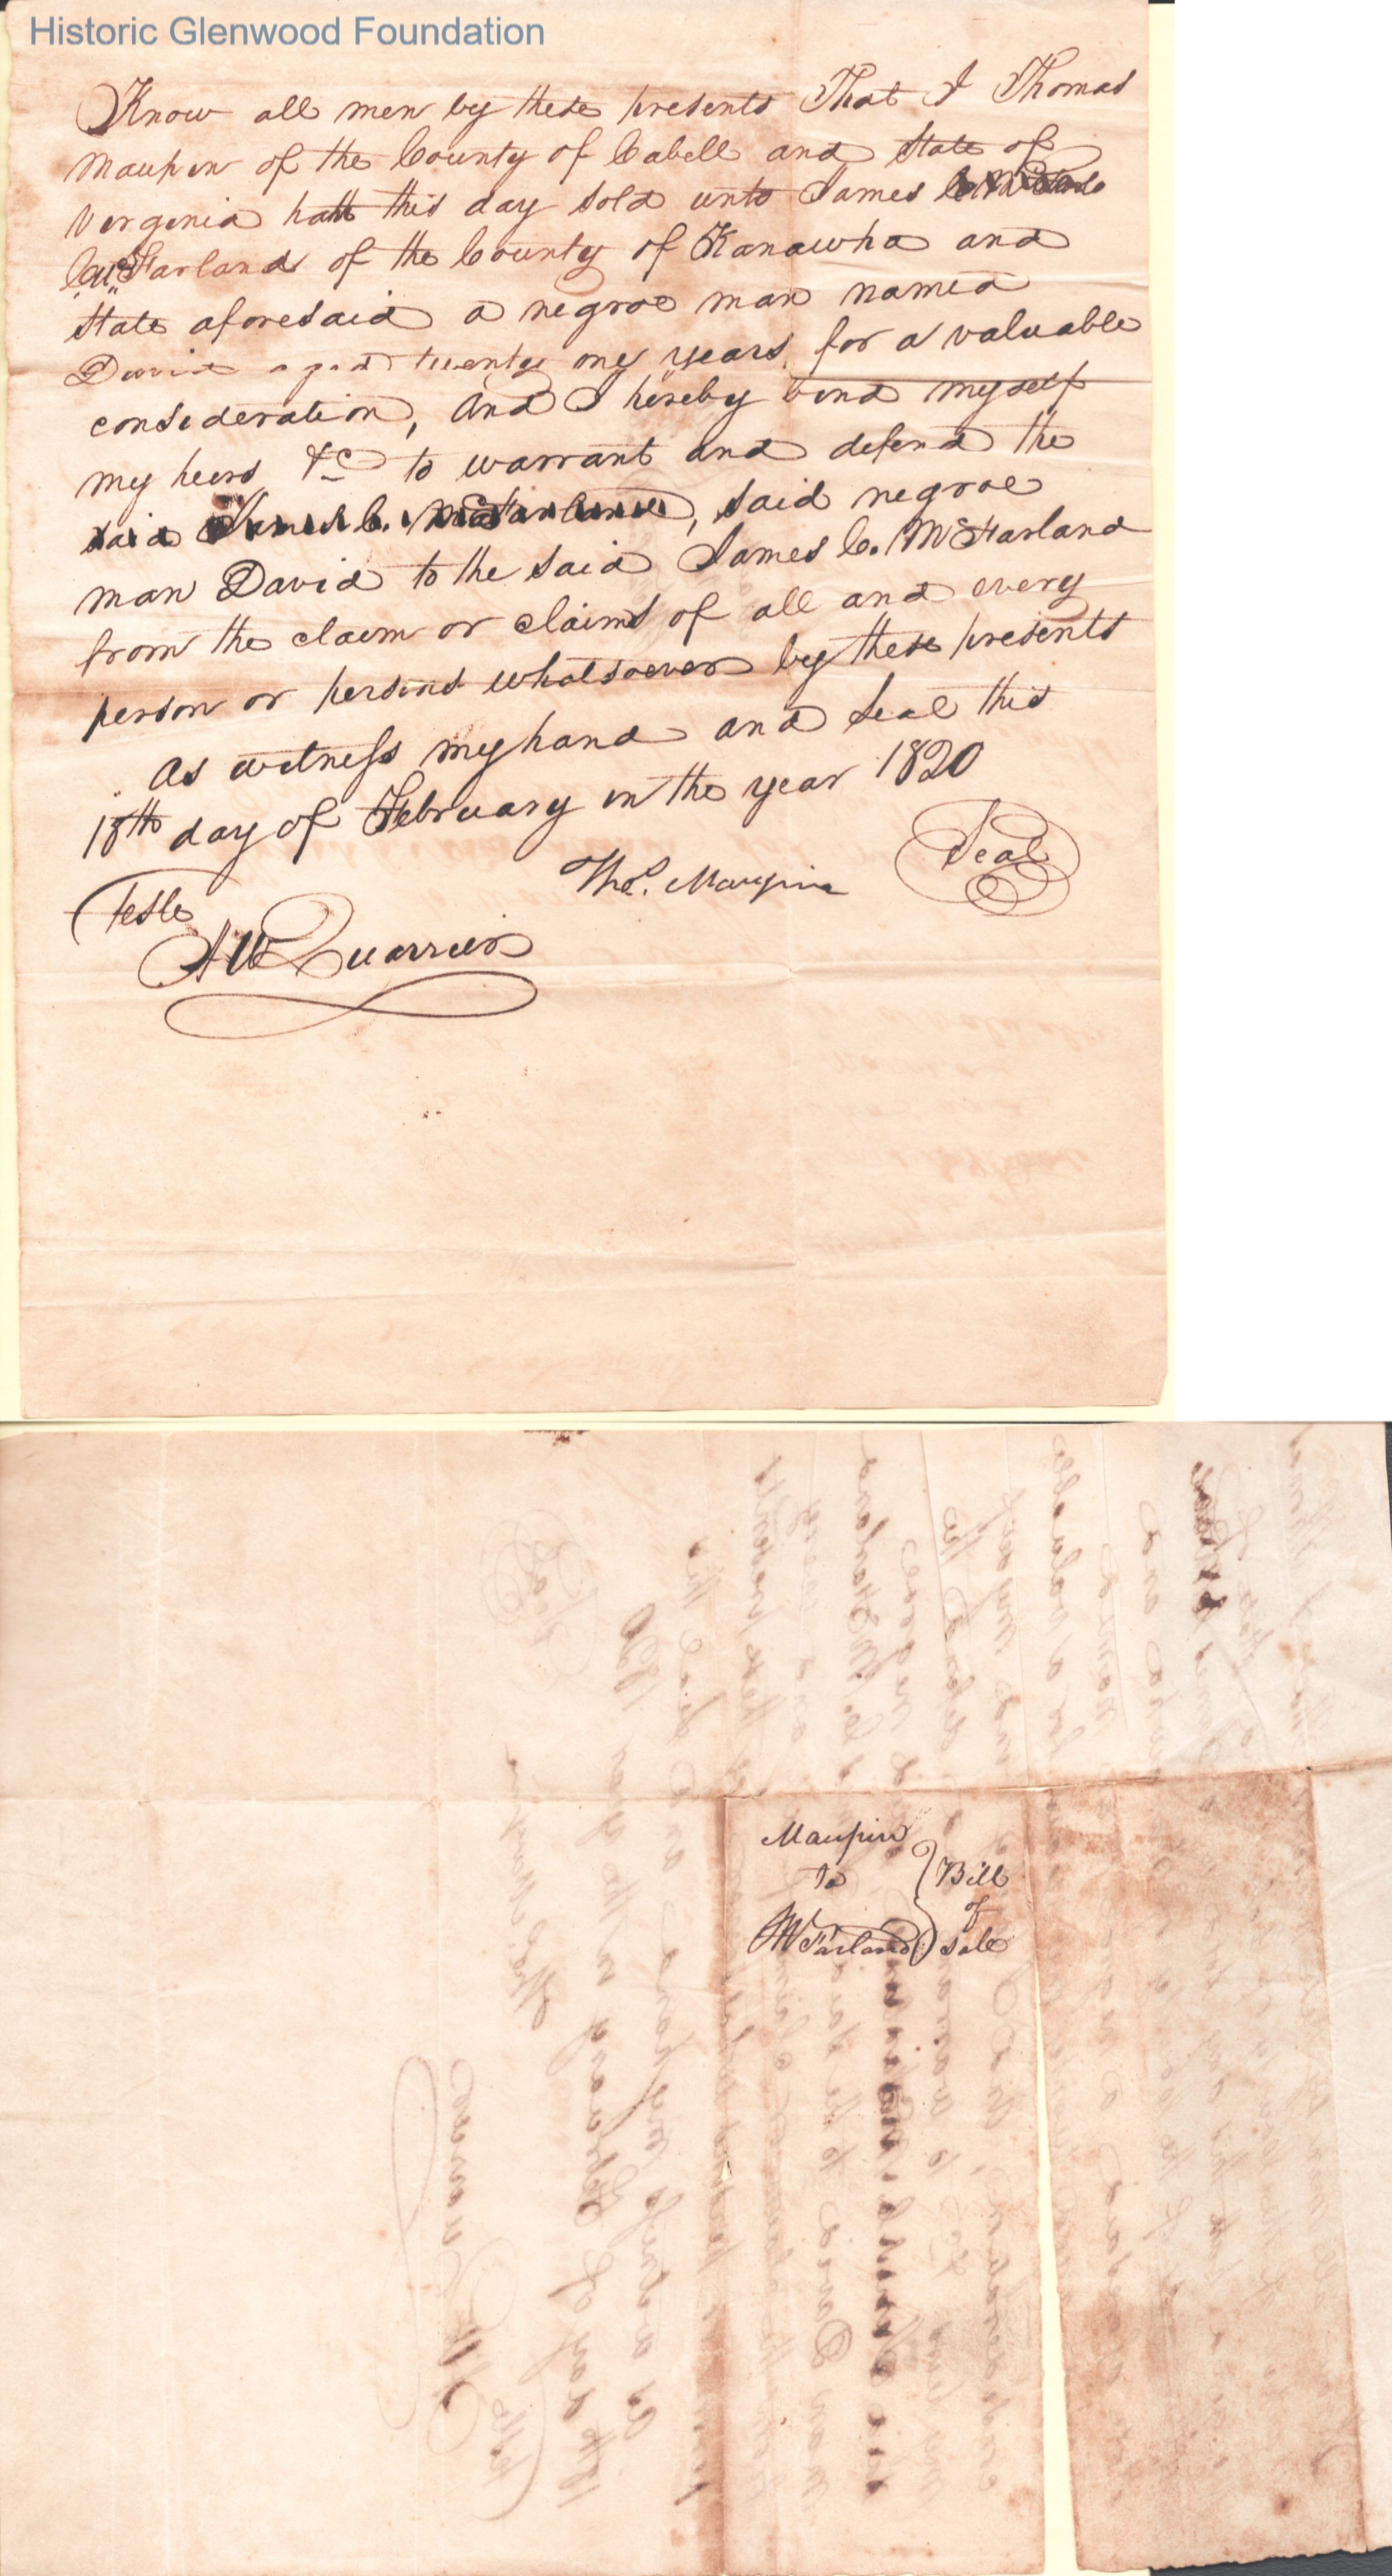 Historic Glenwood Foundation
Know all men by these presents That I Thomas
Maupin of the County of Cabell and State of
Virginia hath this day sold unto James
C. McFarland of the County of Kanawha and
State aforesaid a negroe man named
David aged twenty one years, for a valuable
consideration, and I hereby bind myself
my heirs &c to warrant and defend the
said James C. McFarland, said negroe
man David to the said James C. McFarland
from the claim or claims of all and every
person or persons whatsoever by these presents
As witness my hand and Seal this
18th day of February in the year 1820
Tho.s Maupin Seal
Teste
A W Quarrier
Maupin
To Bill
of
McFarland Sale